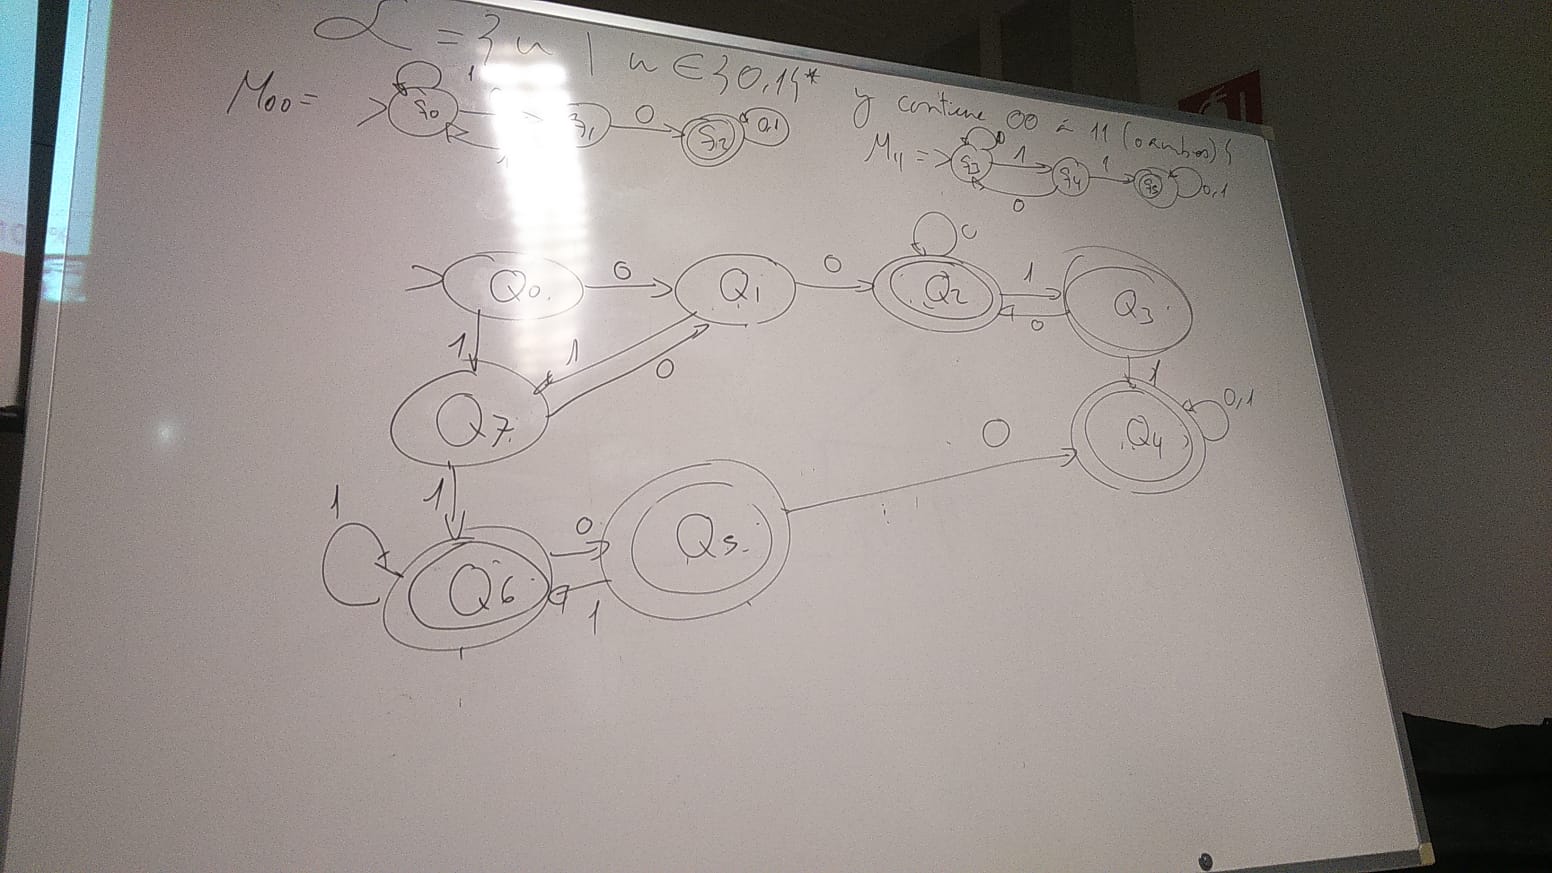 L = { w | w ∈ {0,1}* y contiene 00 ó 11 (o ambos) }
M00 =
q0 1 q1 0 q2 0,1
1
M11 = q3 0 1 q4 1 q5 0,1
0
0
Q0 0 Q1 0 Q2 1 Q3
0
1 1 0 1
Q7 0 Q4 0,1
1
1 Q6 0 Q5
1